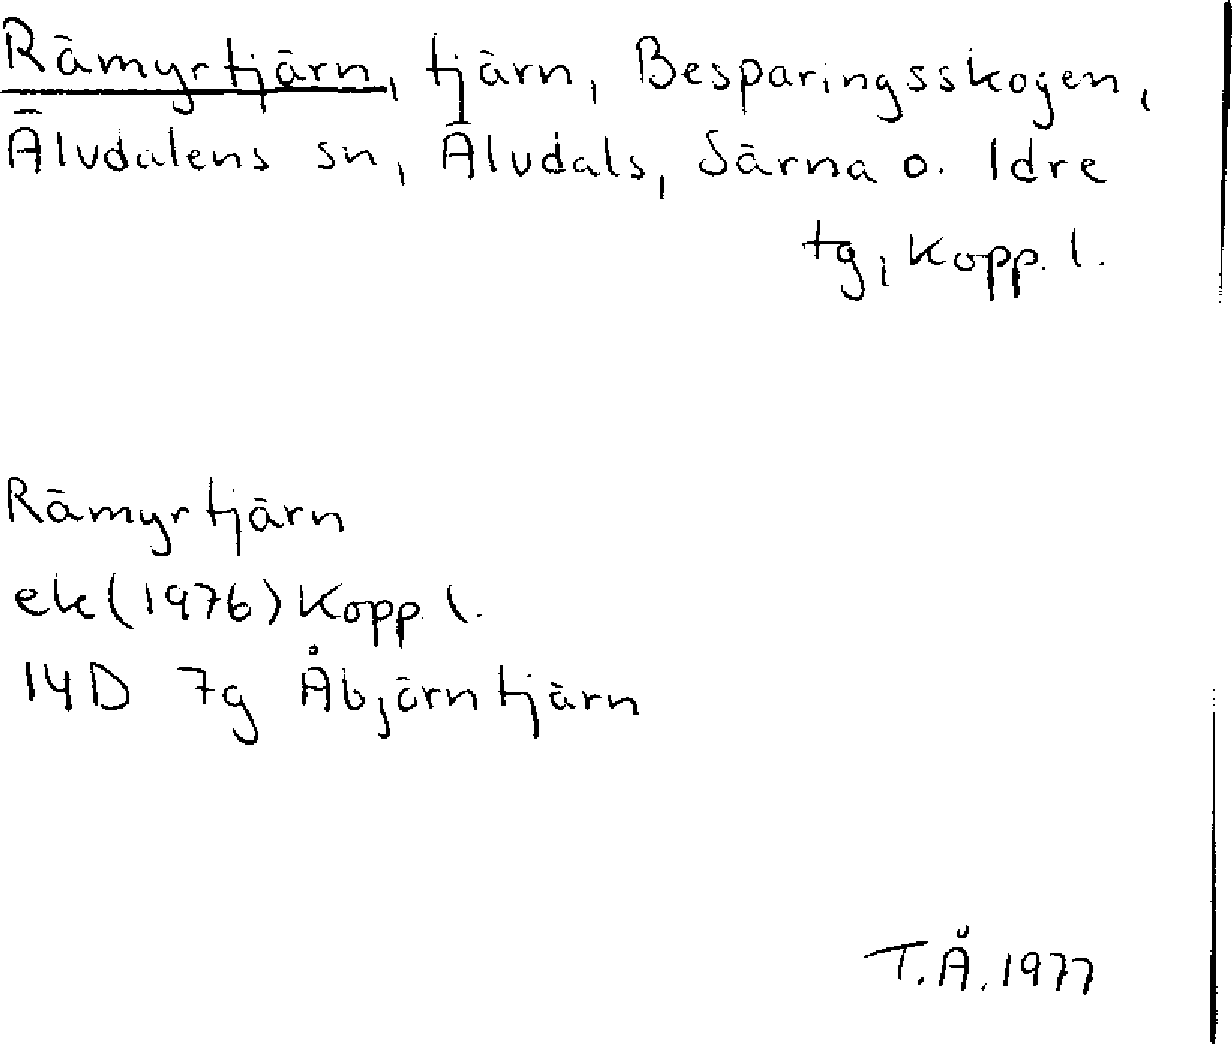 Rämyrtjärn, tjärn, Besparingsskogen,
Älvdalens sn, Älvdals, Särna o. Idre
tg, Kopp. l.
Rämyrtjärn
ek(1976) Kopp. l.
14D 7g Åbjörntjärn
T.Å. 1977